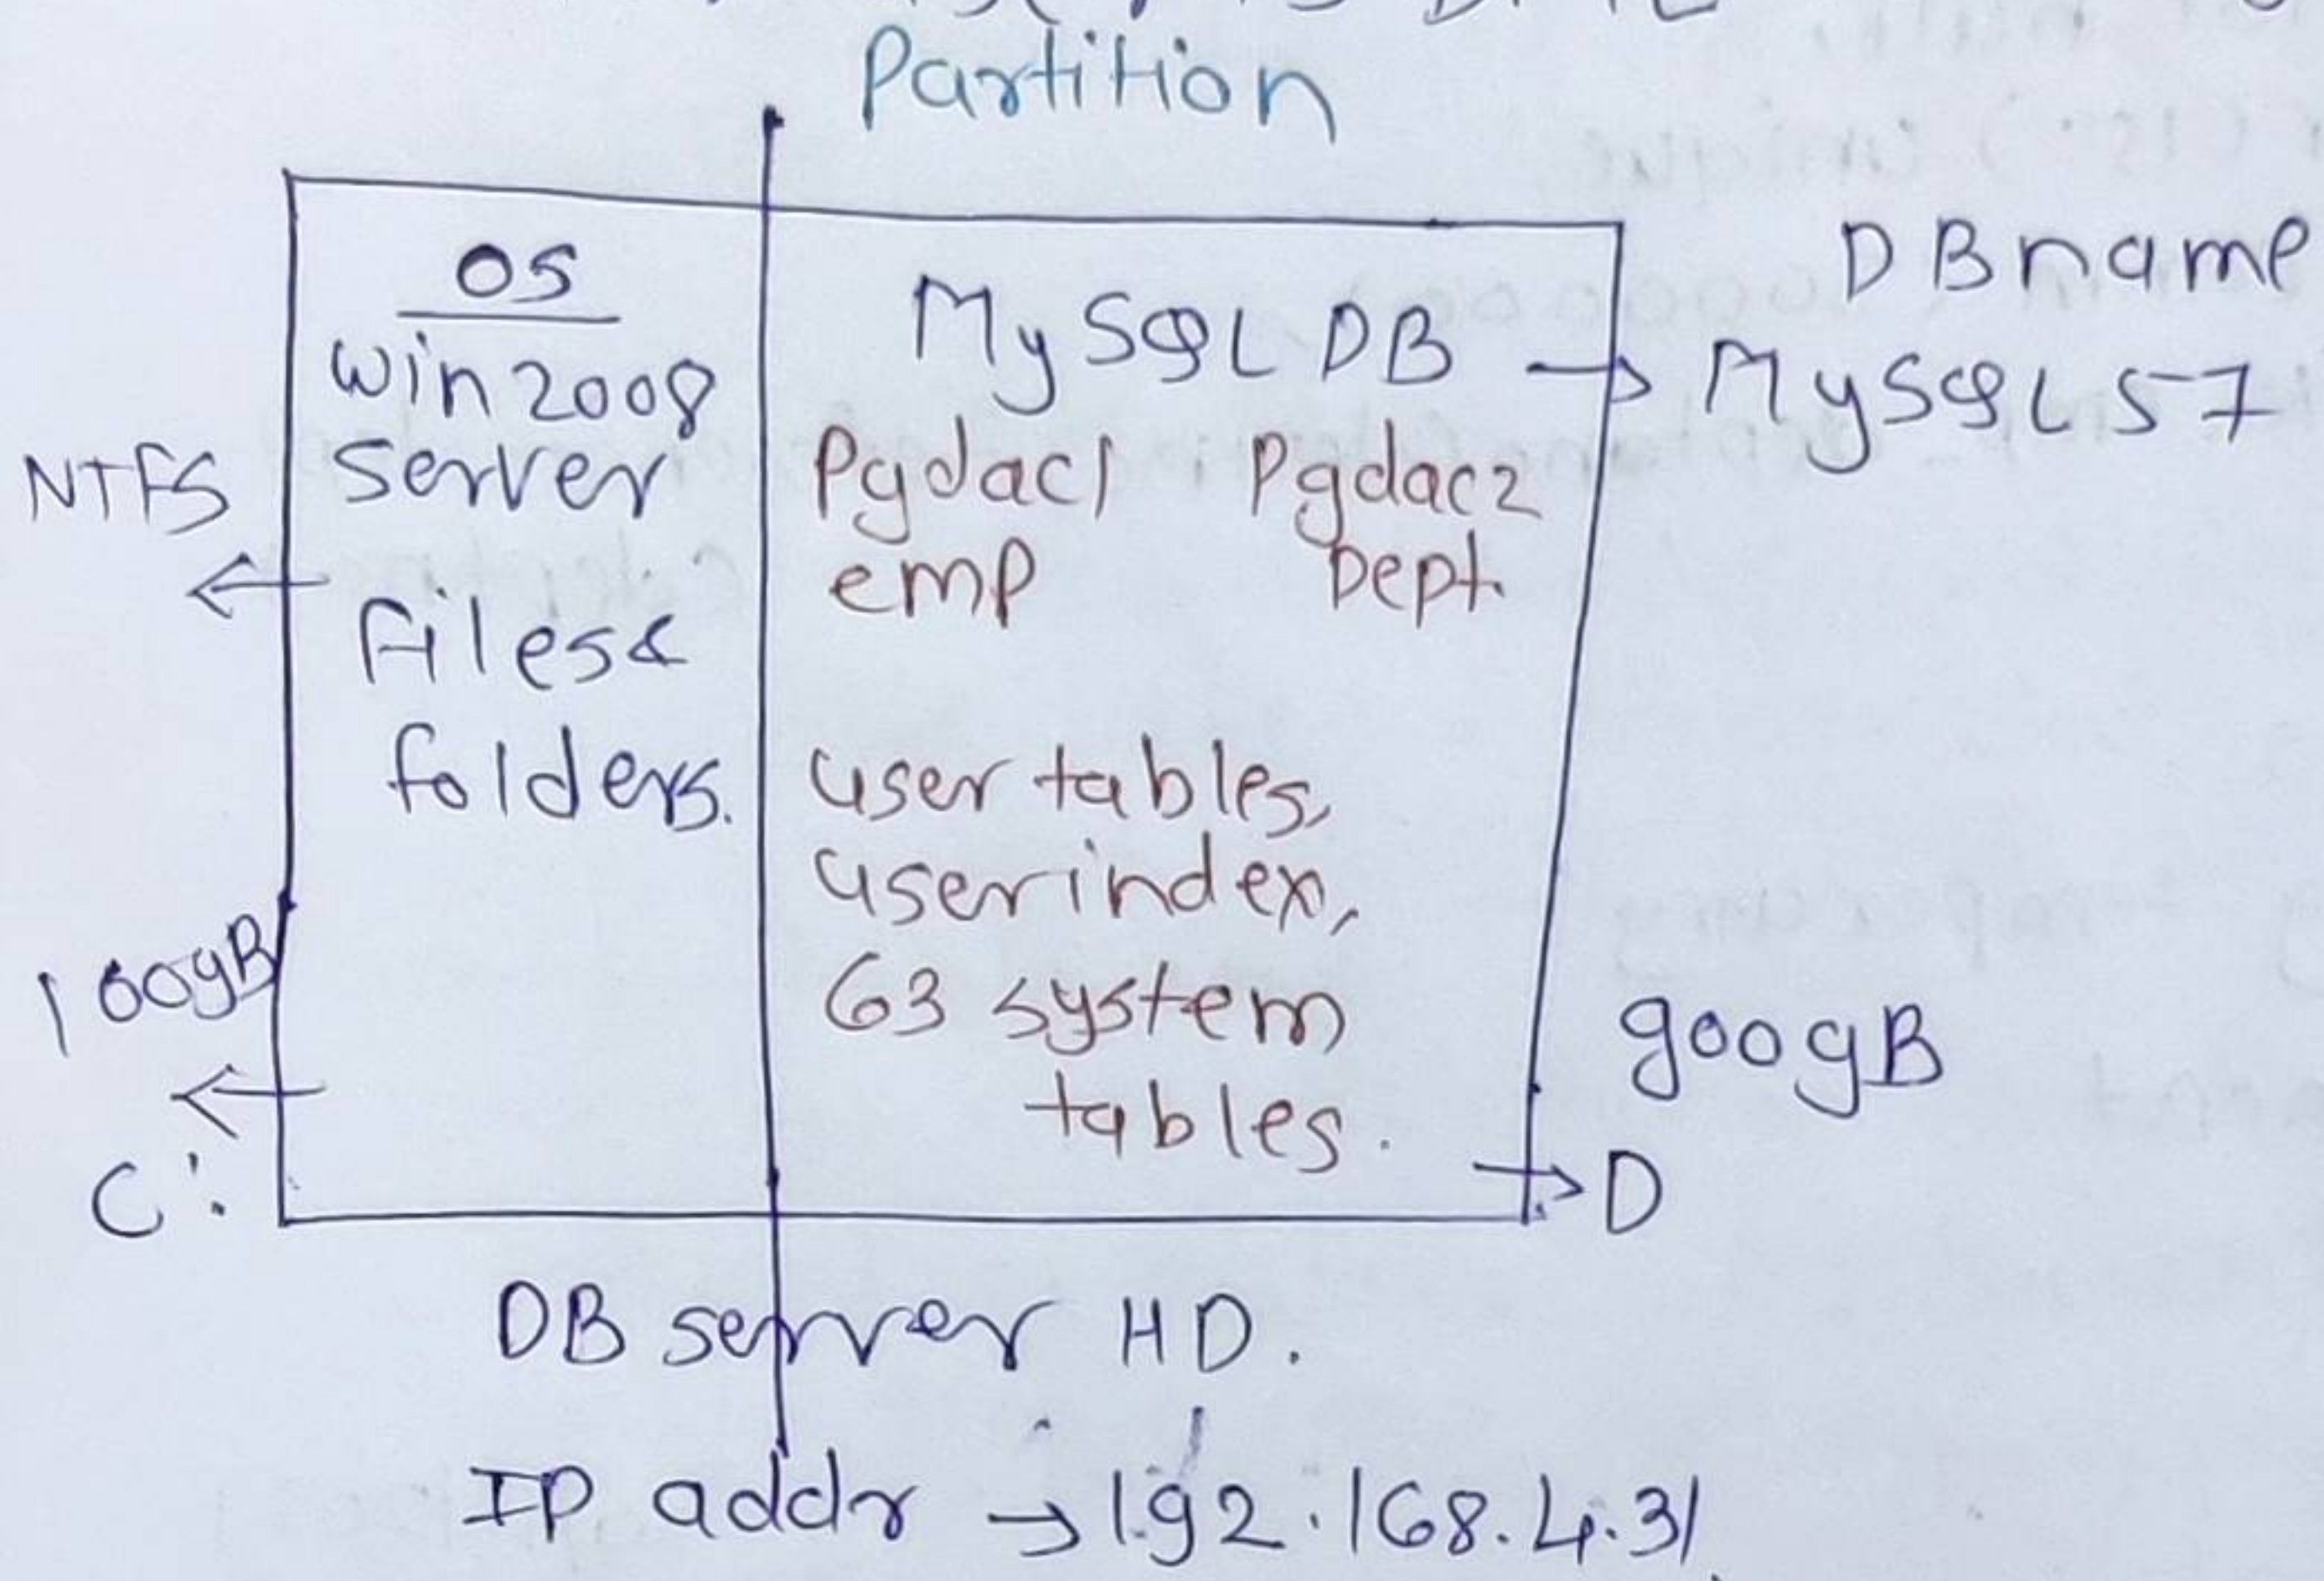 Partition
OS
Win 2008
Server
files &
folders.
NTFS
100gB
C:
MySQL DB → MySQL 57
DBname
Pgdac1 Pgdac2
emp Dept.
user tables,
userindex,
63 system
tables.
900gB
D
DB server HD.
IP addr → 192.168.4.31